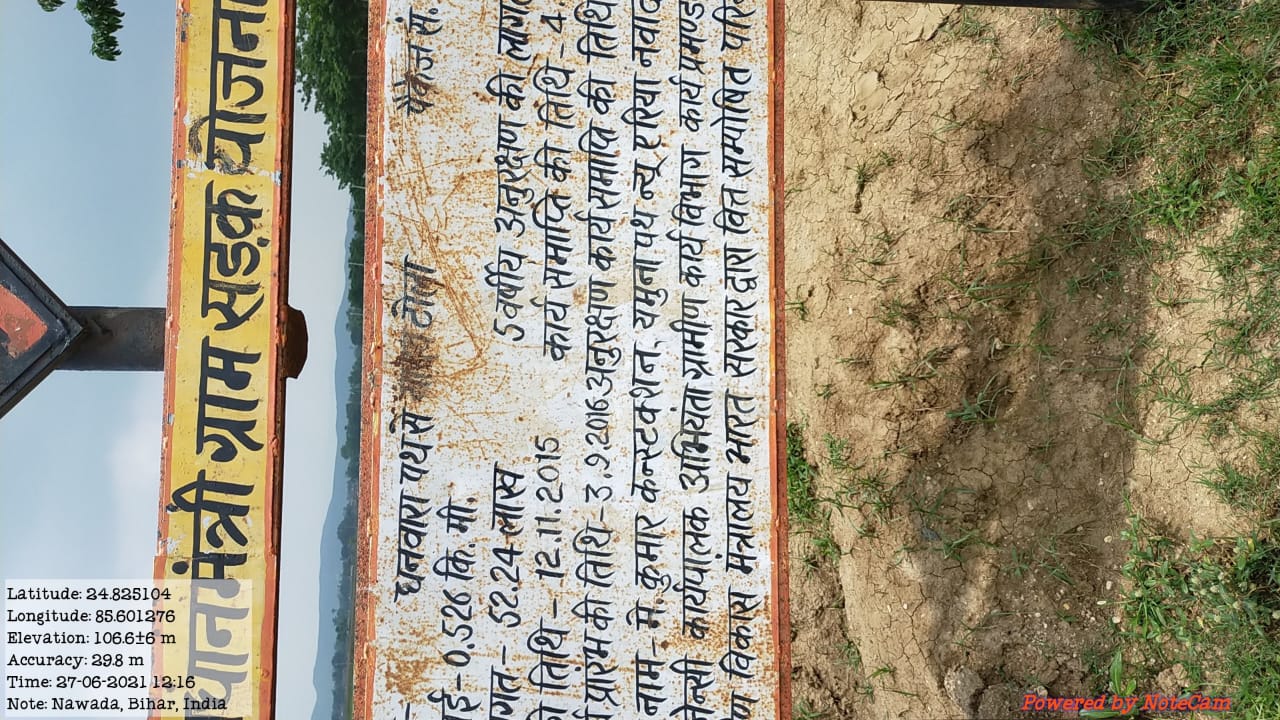 धानमंत्री ग्राम सड़क योजना
धनवारा पथ से टोला पैकेज सं.
ई - 0.526 कि.मी.
गत - 52.24 लाख 5 वर्षीय अनुरक्षण की लागत
की तिथि - 12.11.2015 कार्य समाप्ति की तिथि - 4.
प्रारंभ की तिथि - 3.9.2016 अनुरक्षण कार्य समाप्ति की तिथि
नाम - मे. कुमार कन्स्टक्शन, यमुना पथ न्यू एरिया नवाद
जेन्सी कार्यपालक अभियंता ग्रामीण कार्य विभाग कार्य प्रमण्ड
ण विकास मंत्रालय भारत सरकार द्वारा वित्त सम्पोषित परि
Latitude: 24.825104
Longitude: 85.601276
Elevation: 106.6±6 m
Accuracy: 29.8 m
Time: 27-06-2021 12:16
Note: Nawada, Bihar, India
Powered by NoteCam